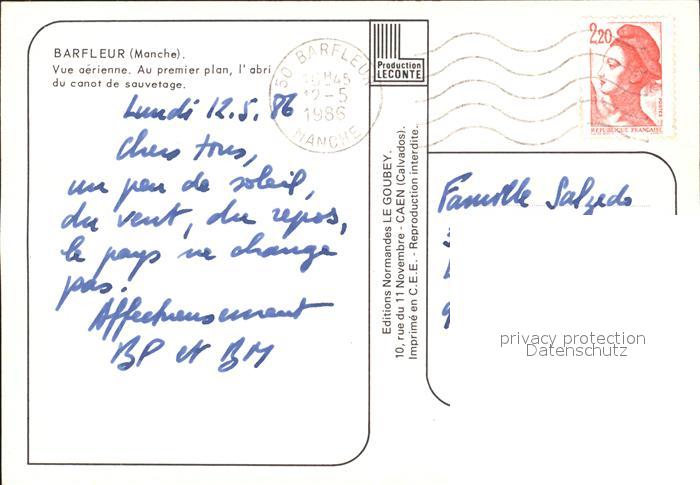 BARFLEUR (Manche).
Vue aérienne. Au premier plan, l'abri
du canot de sauvetage.
Lundi 12.5.86
Chers tous,
un peu de soleil,
du vent, du repos,
le pays ne change
pas.
Affectueusement
BP et BM
50 BARFLEUR
12-5
1986
MANCHE
Production
LECONTE
Editions Normandes LE GOUBEY.
10, rue du 11 Novembre - CAEN (Calvados).
Imprimé en C.E.E. - Reproduction interdite.
2,20
POSTES
REPUBLIQUE FRANÇAISE
Famille Salzedo
privacy protection
Datenschutz